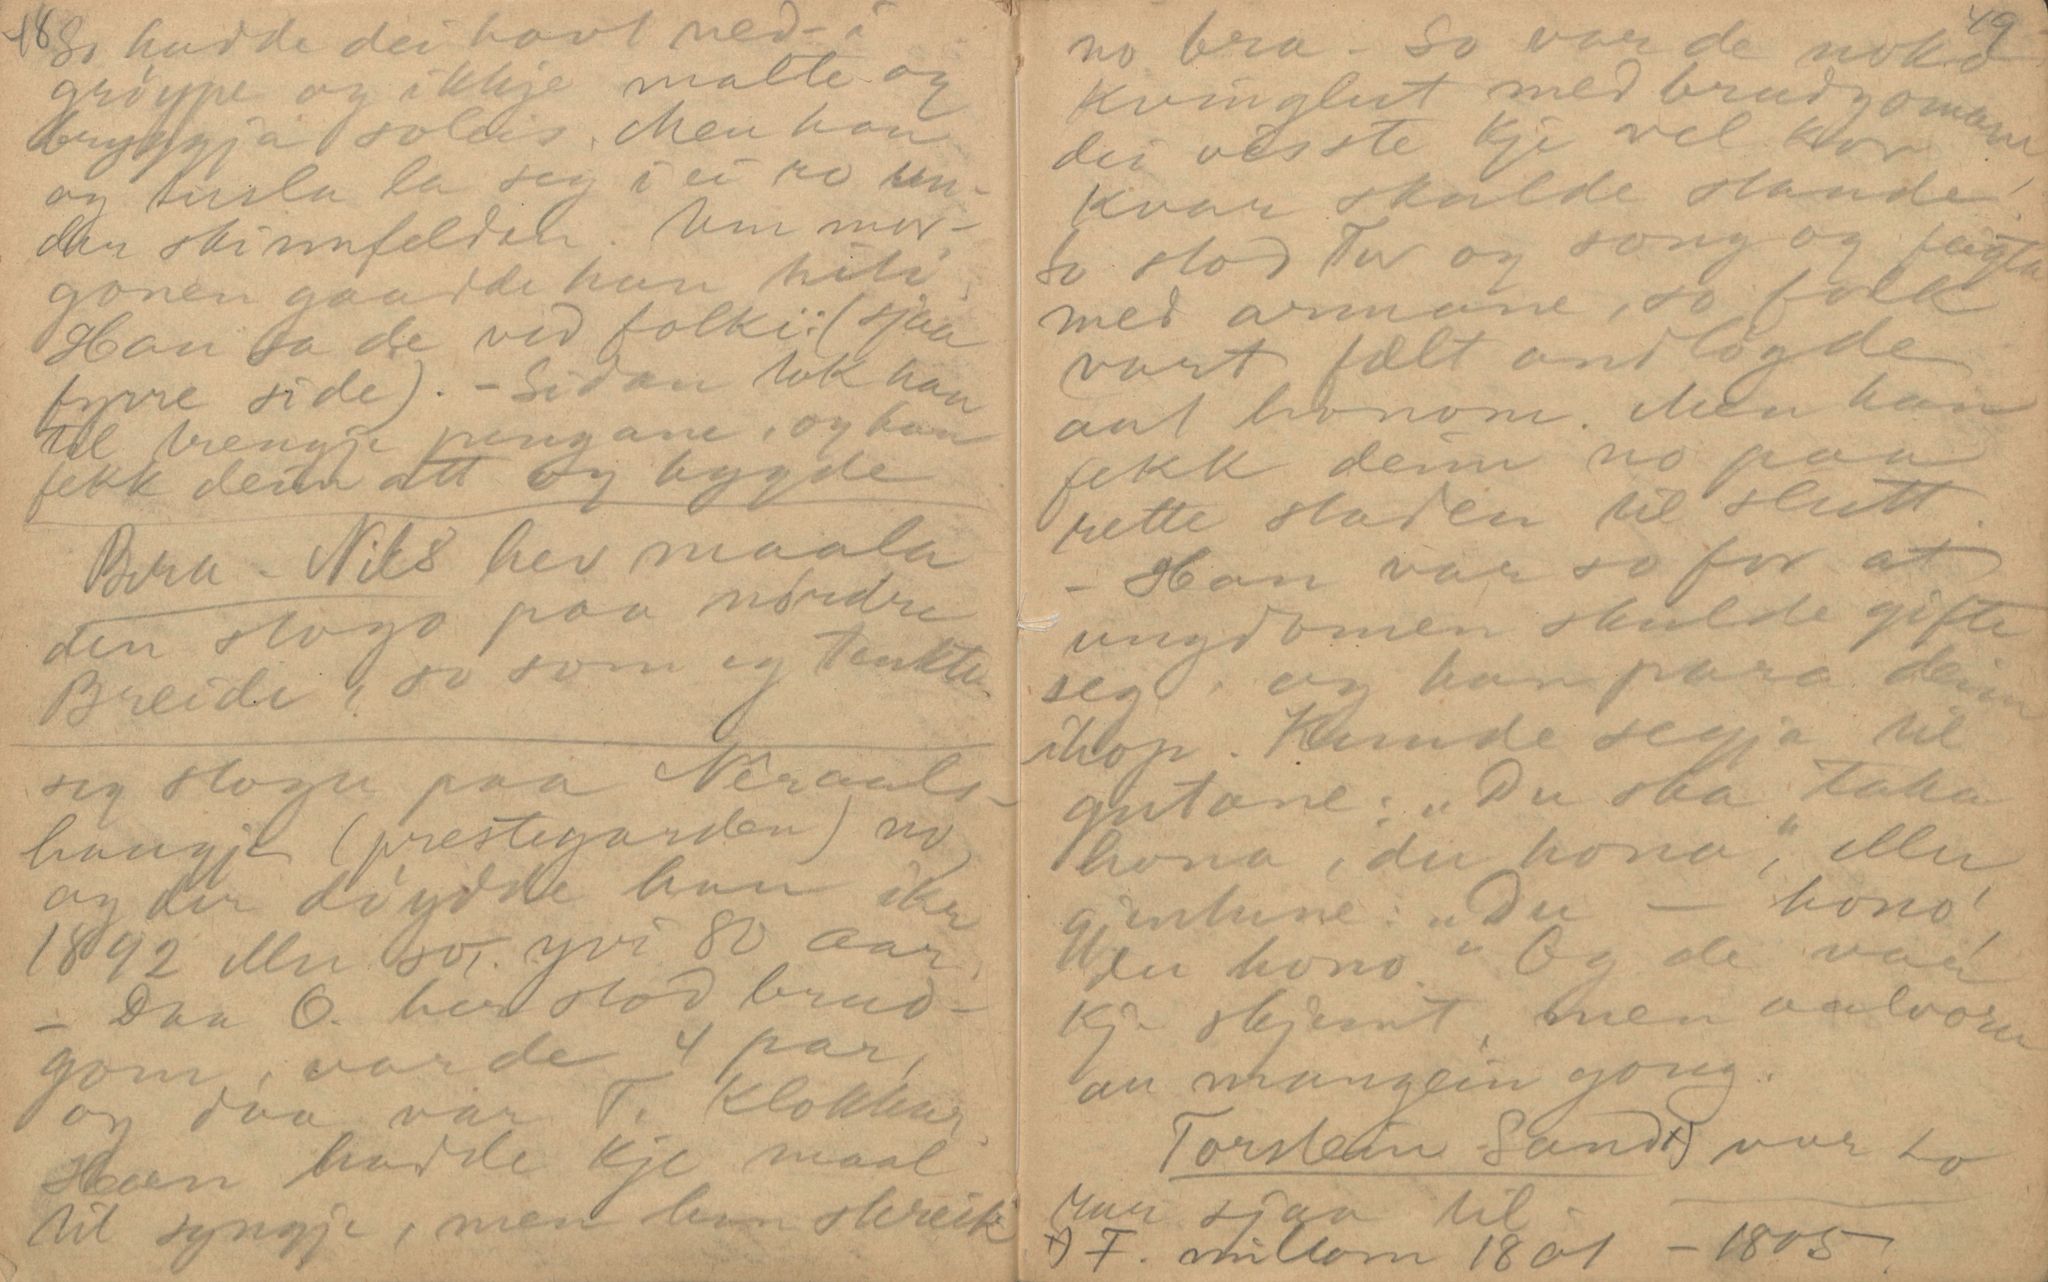 48
So hadde dei havt ned-i
grøype og ikkje malte og
bryggja soleis. Men han
og tusla la seg i ei ro un-
der skinnfelden. Um mor-
gonen gaadde han
Han sa de ved folki: (sjaa
fyrre side). - Sidan tok han
til trengje pengane, og han
fekk deim att og bygde
Bera-Nils hev maala
den stogo paa nørdre
Breidi, so som eg tenkte
seg stogu paa Neraals-
haugje (prestegarden) no
og der døydde han ikr
1892 eller so, yvi 80 aar,
- Daa O. her stod brud-
gom, var de 4 par,
og daa var T. Klokkar.
Han hadde kje maal
til syngje, men han skreik
49
no bra - So var de noko
kvinglut med brudgomane,
dei visste kje vel kor
kvar skulde stande.
So stod Tor og song og fegta
med armane, so folk
vart fælt andløgde
aat honom. Men han
fekk deim no paa
rette staden til slutt.
- Han var so for at
ungdomen skulde gifte
seg, og han para deim
ihop. Kunde segja til
gutane: "Du ska taka
hona, du hona," eller
gjentune: "Du - hono,
du hono." Og de var
kje skjemt, men aalvora
au mangein gong.
Torstein Sandø +) var so
rar sjaa til -
+) F. millom 1801 - 1805.